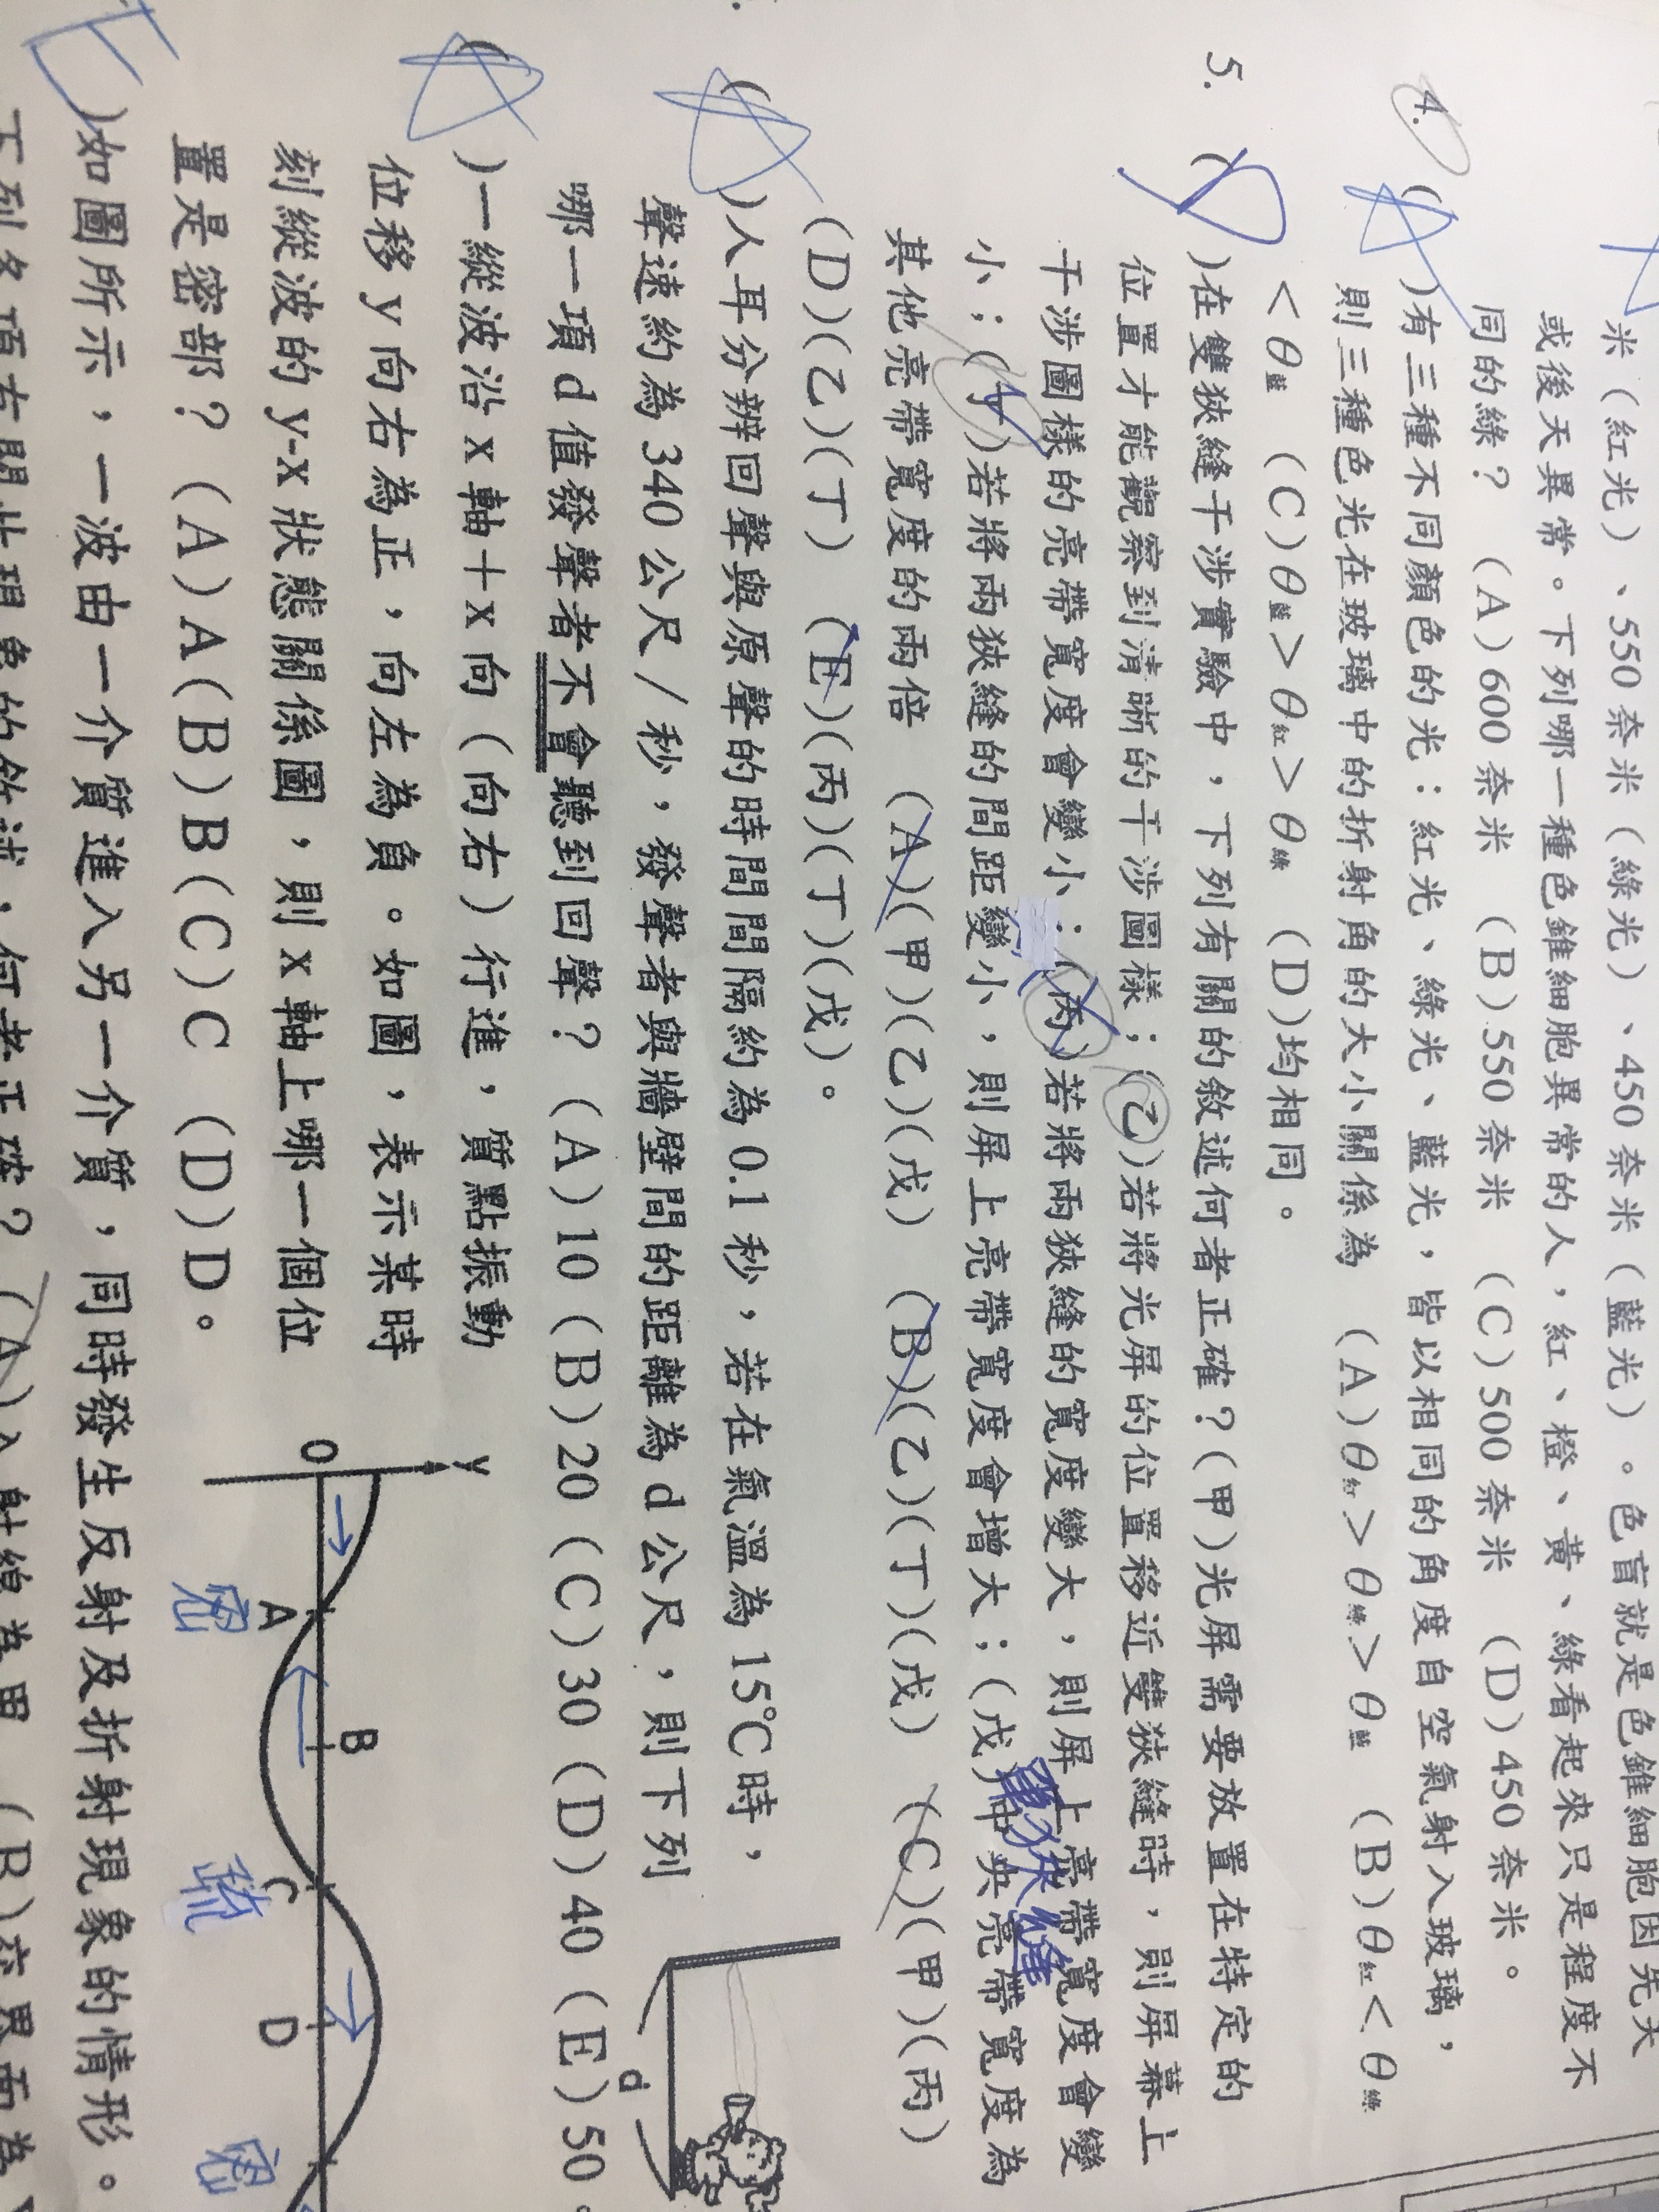 米(紅光)、550奈米(綠光)、450奈米(藍光)。色盲就是色錐細胞因先天
或後天異常。下列哪一種色錐細胞異常的人，紅、橙、黃、綠看起來只是程度不
同的綠？ (A)600奈米 (B)550奈米 (C)500奈米 (D)450奈米。
4. (A)有三種不同顏色的光：紅光、綠光、藍光，皆以相同的角度自空氣射入玻璃，
則三種色光在玻璃中的折射角的大小關係為 (A)θ紅>θ綠>θ藍 (B)θ紅<θ綠
<θ藍 (C)θ藍>θ紅>θ綠 (D)均相同。
5. ( )在雙狹縫干涉實驗中，下列有關的敘述何者正確？(甲)光屏需要放置在特定的
位置才能觀察到清晰的干涉圖樣；(乙)若將光屏的位置移近雙狹縫時，則屏幕上
干涉圖樣的亮帶寬度會變小；(丙)若將兩狹縫的寬度變大，則屏上亮帶寬度會變
小；(丁)若將兩狹縫的間距變小，則屏上亮帶寬度會增大；(戊)中央亮帶寬度為
單狹縫
其他亮帶寬度的兩倍 (A)(甲)(乙)(戊) (B)(乙)(丁)(戊) (C)(甲)(丙)
(D)(乙)(丁) (E)(丙)(丁)(戊)。
(A)人耳分辨回聲與原聲的時間間隔約為0.1秒，若在氣溫為15℃時，
聲速約為340公尺/秒，發聲者與牆壁間的距離為d公尺，則下列
哪一項d值發聲者不會聽到回聲？(A)10(B)20(C)30(D)40(E)50。
d
(A)一縱波沿x軸+x向(向右)行進，質點振動
位移y向右為正，向左為負。如圖，表示某時
刻縱波的y-x狀態關係圖，則x軸上哪一個位
置是密部？(A)A(B)B(C)C (D)D。
y
O A B C D
密 疏 密
E)如圖所示，一波由一介質進入另一介質，同時發生反射及折射現象的情形。
下列各項有關此現象的敘述，何者正確？(A)入射線為甲 (B)交界面為